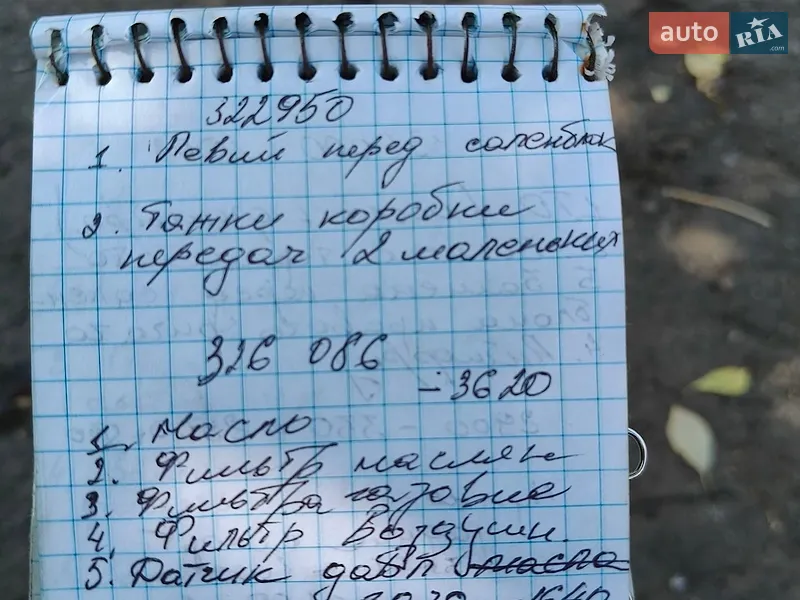 auto RIA .com
322950
1. Левий перед саленблок
2. Тяжки коробки
передач 2 маленьких
326 086
- 3620
1. Масло
2. Фильтр маслян
3. Фильтра газовие
4. Фильтр воздушн.
5. Датчик давл масла
газа 1640